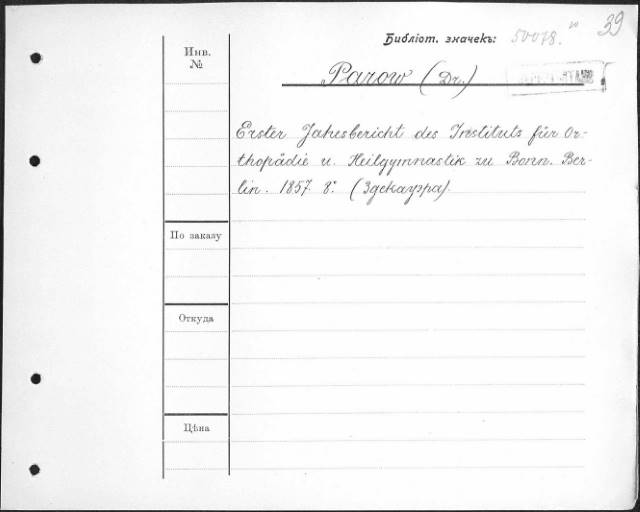 39
Библіот. значекъ: 50078.
Инв.
№
Parow (Dr.)
Erster Jahesbericht des Instituts für Or-
thopädie u. Heilgymnastik zu Bonn. Ber-
lin. 1857. 8°. (Здекауэра).
По заказу
Откуда
Цѣна